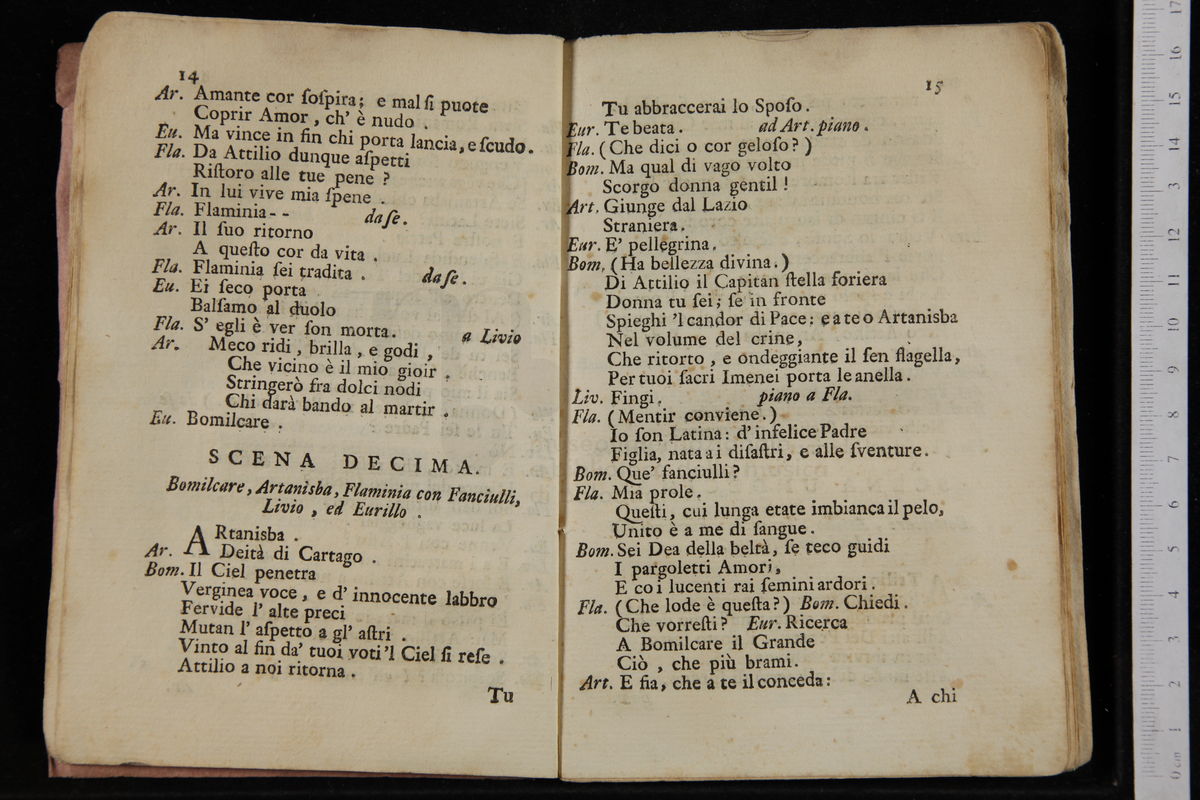 14
Ar. Amante cor ſoſpira; e mal ſi puote
Coprir Amor, ch' è nudo.
Eu. Ma vince in fin chi porta lancia, e ſcudo.
Fla. Da Attilio dunque aſpetti
Riſtoro alle tue pene?
Ar. In lui vive mia ſpene.
Fla. Flaminia-- da ſe.
Ar. Il ſuo ritorno
A queſto cor da vita.
Fla. Flaminia ſei tradita. da ſe.
Eu. Ei ſeco porta
Balſamo al duolo
Fla. S' egli è ver ſon morta. a Livio
Ar. Meco ridi, brilla, e godi,
Che vicino è il mio gioir.
Stringerò fra dolci nodi
Chi darà bando al martir.
Eu. Bomilcare.
SCENA DECIMA.
Bomilcare, Artanisba, Flaminia con Fanciulli,
Livio, ed Eurillo.
ARtanisba.
Ar. Deità di Cartago.
Bom. Il Ciel penetra
Verginea voce, e d' innocente labbro
Fervide l' alte preci
Mutan l' aſpetto a gl' aſtri.
Vinto al fin da' tuoi voti 'l Ciel ſi reſe.
Attilio a noi ritorna.
Tu
15
Tu abbraccerai lo Spoſo.
Eur. Te beata. ad Art. piano.
Fla. (Che dici o cor geloſo?)
Bom. Ma qual di vago volto
Scorgo donna gentil!
Art. Giunge dal Lazio
Straniera.
Eur. E' pellegrina.
Bom. (Ha bellezza divina.)
Di Attilio il Capitan ſtella foriera
Donna tu ſei; ſe in fronte
Spieghi 'l candor di Pace: e a te o Artanisba
Nel volume del crine,
Che ritorto, e ondeggiante il ſen flagella,
Per tuoi ſacri Imenei porta le anella.
Liv. Fingi. piano a Fla.
Fla. (Mentir conviene.)
Io ſon Latina: d' infelice Padre
Figlia, nata a i diſaſtri, e alle ſventure.
Bom. Que' fanciulli?
Fla. Mia prole.
Queſti, cui lunga etate imbianca il pelo,
Unito è a me di ſangue.
Bom. Sei Dea della beltà, ſe teco guidi
I pargoletti Amori,
E co i lucenti rai ſemini ardori.
Fla. (Che lode è queſta?) Bom. Chiedi.
Che vorreſti? Eur. Ricerca
A Bomilcare il Grande
Ciò, che più brami.
Art. E fia, che a te il conceda:
A chi